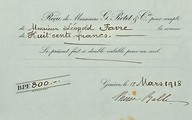 Régie de Messieurs G. Bétet & Cie pour compte
de Monsieur Léopold Favre la somme
de Huit cents francs.
Le présent fait à double valable pour un seul
Genève, le 12 Mars 1918
BPF 800.—